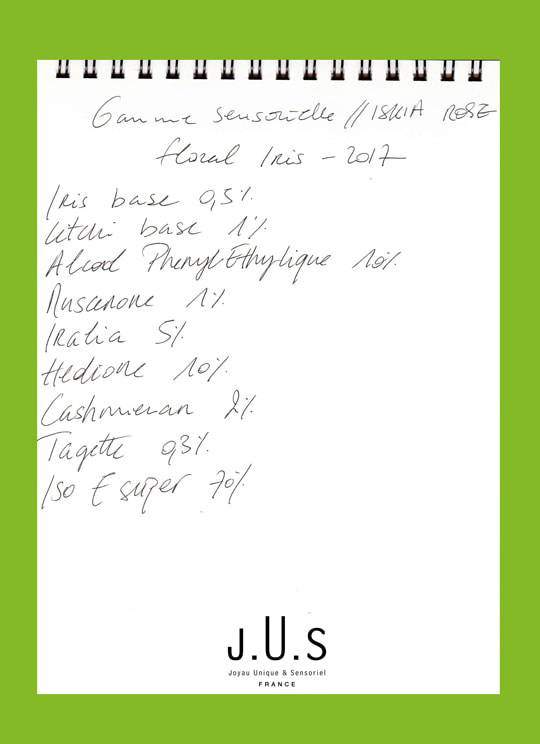 Gamme sensorielle // ISKIA ROSE
floral Iris - 2017
Iris base 0,5%
Litchi base 1%
Alcool Phenyl Ethylique 10%
Muscenone 1%
Iralia 5%
Hedione 10%
Cashmeran 2%
Tagette 0,3%
Iso E super 70%
J.U.S
Joyau Unique & Sensoriel
FRANCE